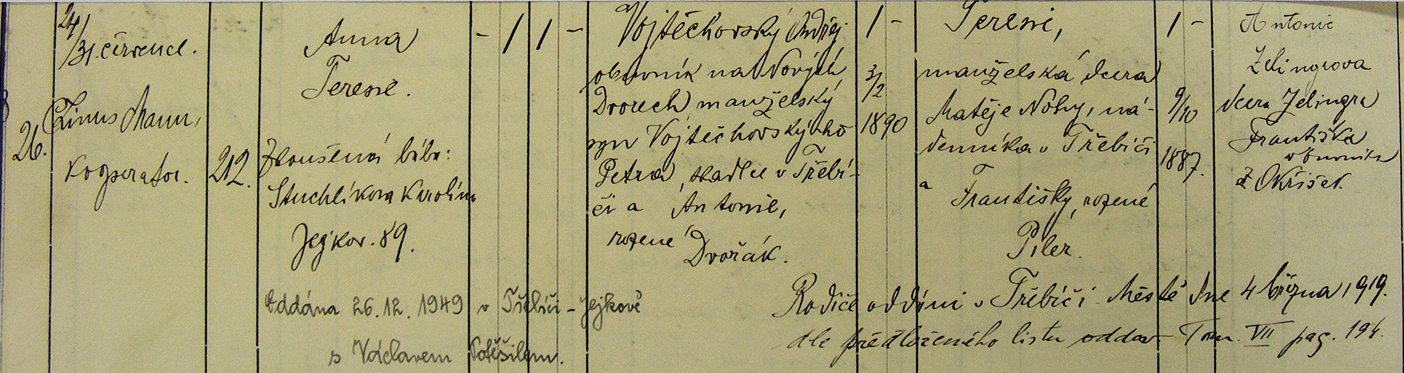 24/
/31 července.
26.
Zinus Mann,
kooperator.
212.
Anna
Terezie.
Zkoušená bába:
Stuchlíková Karolina
Jejkov. 89.
- / / -
Vojtěchovský Ondřej
obuvník na Nových
Dvorech manželský
syn Vojtěchovského
Petra, sedlce v Třebí-
či a Antonie,
rozené
Dvořák.
/ -
3/2
1890
Terezie,
manželská dcera
Matěje Nohy, ná-
denníka v Třebíči
a Františky, rozené
Piler.
/ -
9/10
1887.
Antonie
Zelingrova
dcera Zelingra
Františka
obuvníka
z Okříšek.
Oddána 26.12. 1949 v Třebíči - Jejkově
s Václavem Potěšilem.
Rodiče oddáni v Třebíči Městě dne 4 března 1919.
dle předloženého listu oddav. Tom. VII pag. 194.